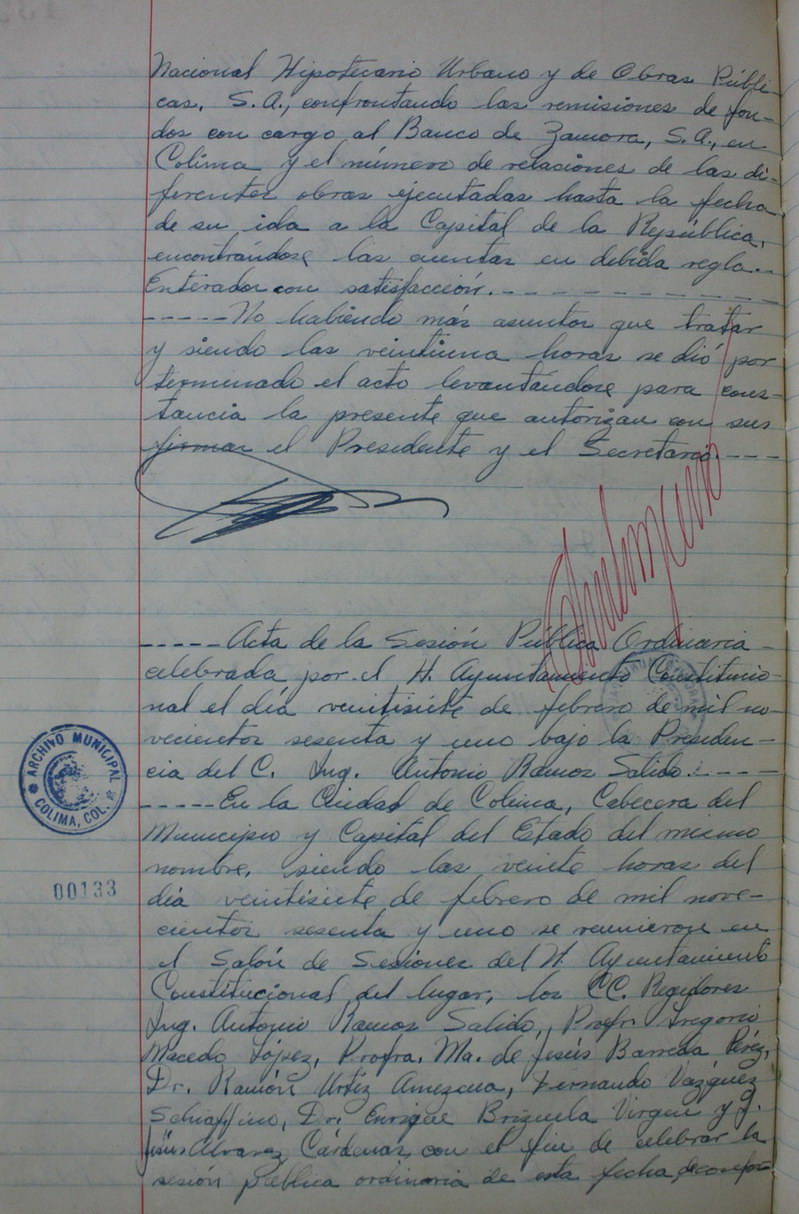 Nacional Hipotecario Urbano y de Obras Públi-
cas, S.A., confrontando las remisiones de fon-
dos con cargo al Banco de Zamora, S.A., en
Colima y el número de relaciones de las di-
ferentes obras ejecutadas hasta la fecha
de su ida a la Capital de la República,
encontrándose las cuentas en debida regla.-
Enterados con satisfacción.----------
-----No habiendo más asuntos que tratar
y siendo las veintiuna horas se dió por
terminado el acto levantándose para cons-
tancia la presente que autorizan con sus
firmas el Presidente y el Secretario.---
-----Acta de la Sesión Pública Ordinaria
celebrada por el H. Ayuntamiento Constitucio-
nal el día veintisiete de febrero de mil no-
vecientos sesenta y uno bajo la Presiden-
cia del C. Ing. Antonio Ramos Salido.----
-----En la Ciudad de Colima, Cabecera del
Municipio y Capital del Estado del mismo
nombre, siendo las veinte horas del
día veintisiete de febrero de mil nove-
cientos sesenta y uno se reunieron en
el Salón de Sesiones del H. Ayuntamiento
Constitucional del lugar, los CC. Regidores
Ing. Antonio Ramos Salido, Profr. Gregorio
Macedo López, Profra. Ma. de Jesús Barreda Pérez,
Dr. Ramón Urtiz Amezcua, Fernando Vazquez
Schiaffino, Dr. Enrique Brizuela Virgen y J.
Jesús Alvarez Cárdenas, con el fin de celebrar la
sesión pública ordinaria de esta fecha,
ARCHIVO MUNICIPAL
COLIMA, COL.
00133